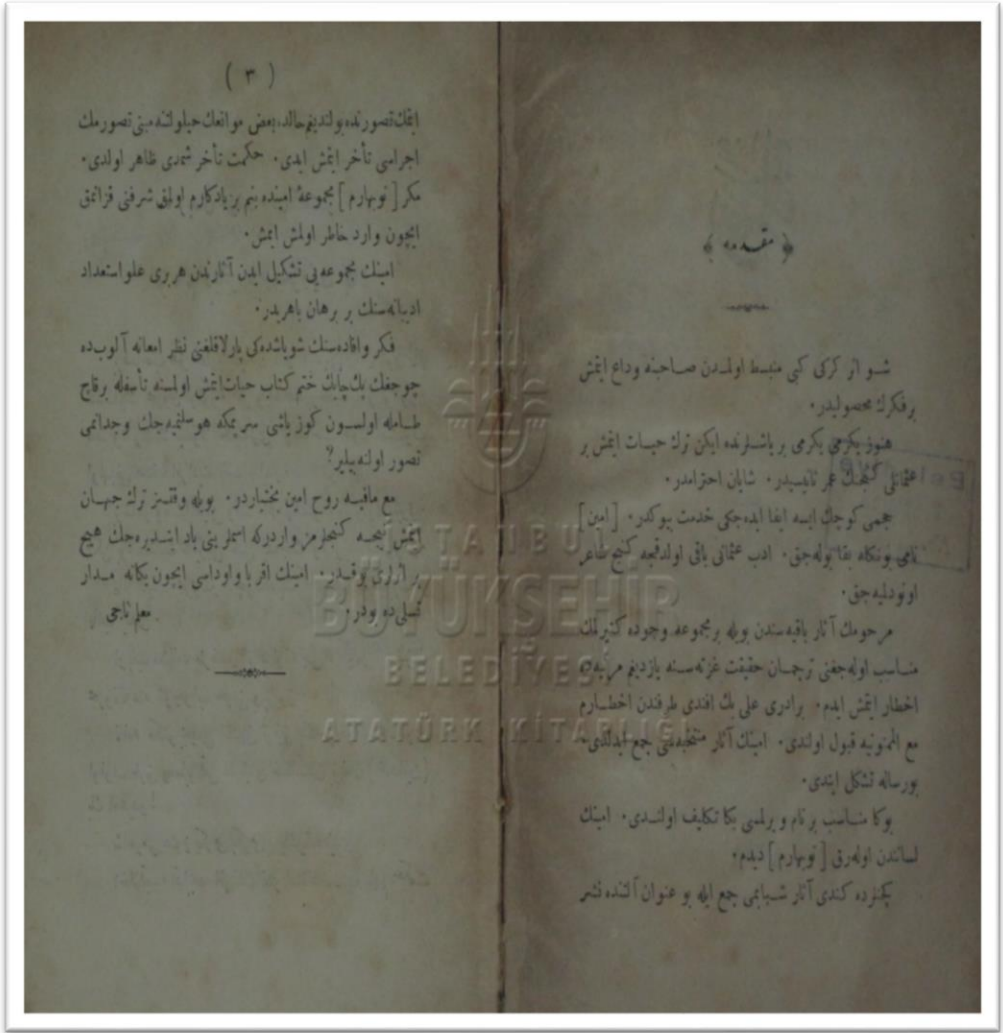 ﴿ مقدمه ﴾
شو اثر كركى كبى منبسط اولمدن صاحبنه وداع ايتمش
بر فكرك محصوليدر.
هنوز يكرمى يكرمى بر ياشلرنده ايكن ترك حيات ايتمش بر
عثمانلى كنجنك عمر ثانيسيدر. شايان احترامدر.
حجمى كوچك ايسه ايفا ايده جكى خدمت بيوكدر. [ امين ]
نامى بونكله بقا بوله جق. ادب عثمانى باقى اولدقجه كنج شاعر
اونودلميه جق.
مرحومك آثار باقيه سندن بويله بر مجموعه وجوده كتيرلمك
مناسب اوله جغنى ترجمان حقيقت غزته سنه يازديغم مرثيه ده
اخطار ايتمش ايدم. برادرى على بك افندى طرفندن اخطارم
مع الممنونيه قبول اولندى. امينك آثار منتخبه سى جمع ايدلدى.
بو رساله تشكل ايتدى.
بوكا مناسب بر نام ويرلمسى بكا تكليف اولندى. امينك
لساندن اوله رق [ نوبهارم ] ديدم.
كچنرده كندى آثار شبابمى جمع ايله بو عنوان آلتنده نشر
( ٣ )
ايتمك تصورنده بولنديغم حالده بعض موانعك حيلولتنه مبنى تصورمك
اجراسى تأخر ايتمش ايدى. حكمت تأخر شمدى ظاهر اولدى.
مكر [ نوبهارم ] مجموعۀ امينده بنم بر يادكارم اولمق شرفنى قزانمق
ايچون وارد خاطر اولمش ايمش.
امينك مجموعه يى تشكيل ايدن آثارندن هر برى علو استعداد
اديبانه سنك بر برهان باهريدر.
فكر و افاده سنك شو ياشده كى پارلاقلغنى نظر امعانه آلوب ده
چوجغك پك چابك ختم كتاب حيات ايتمش اولمسنه تأسفله برقاچ
طامله اولسون كوز ياشى سرپمكه هوسلنميه جك وجدانمى
تصور اولنه بيلير؟
مع مافيه روح امين بختياردر. بويله وقتسز ترك جهان
ايتمش نيجه كنجلرمز واردركه اسملرينى ياد ايتديره جك هيچ
بر اثرلرى يوقدر. امينك اقربا واوداسى ايچون يكانه مدار
تسلى ده بودر. معلم ناجى
İSTANBUL
BÜYÜKŞEHİR
BELEDİYESİ
ATATÜRK KİTAPLIĞI